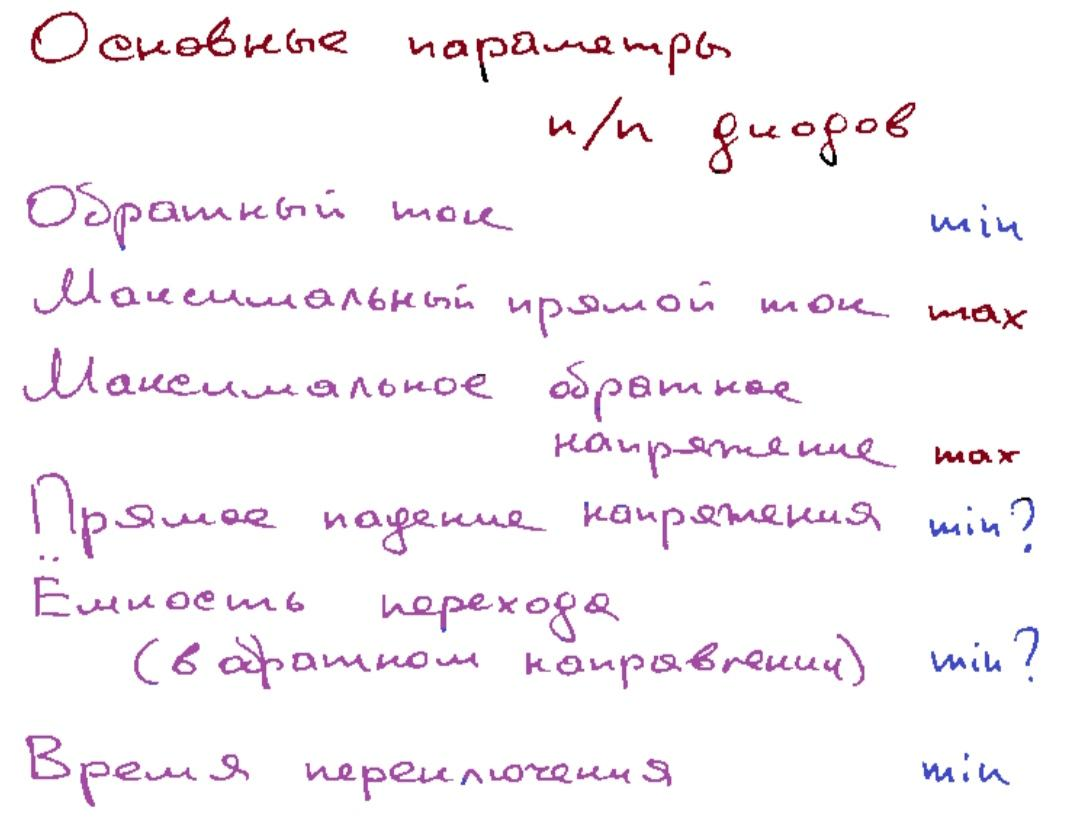 Основные параметры
п/п диодов
Обратный ток min
Максимальный прямой ток max
Максимальное обратное
напряжение max
Прямое падение напряжения min?
Ёмкость перехода
(в обратном направлении) min?
Время переключения min